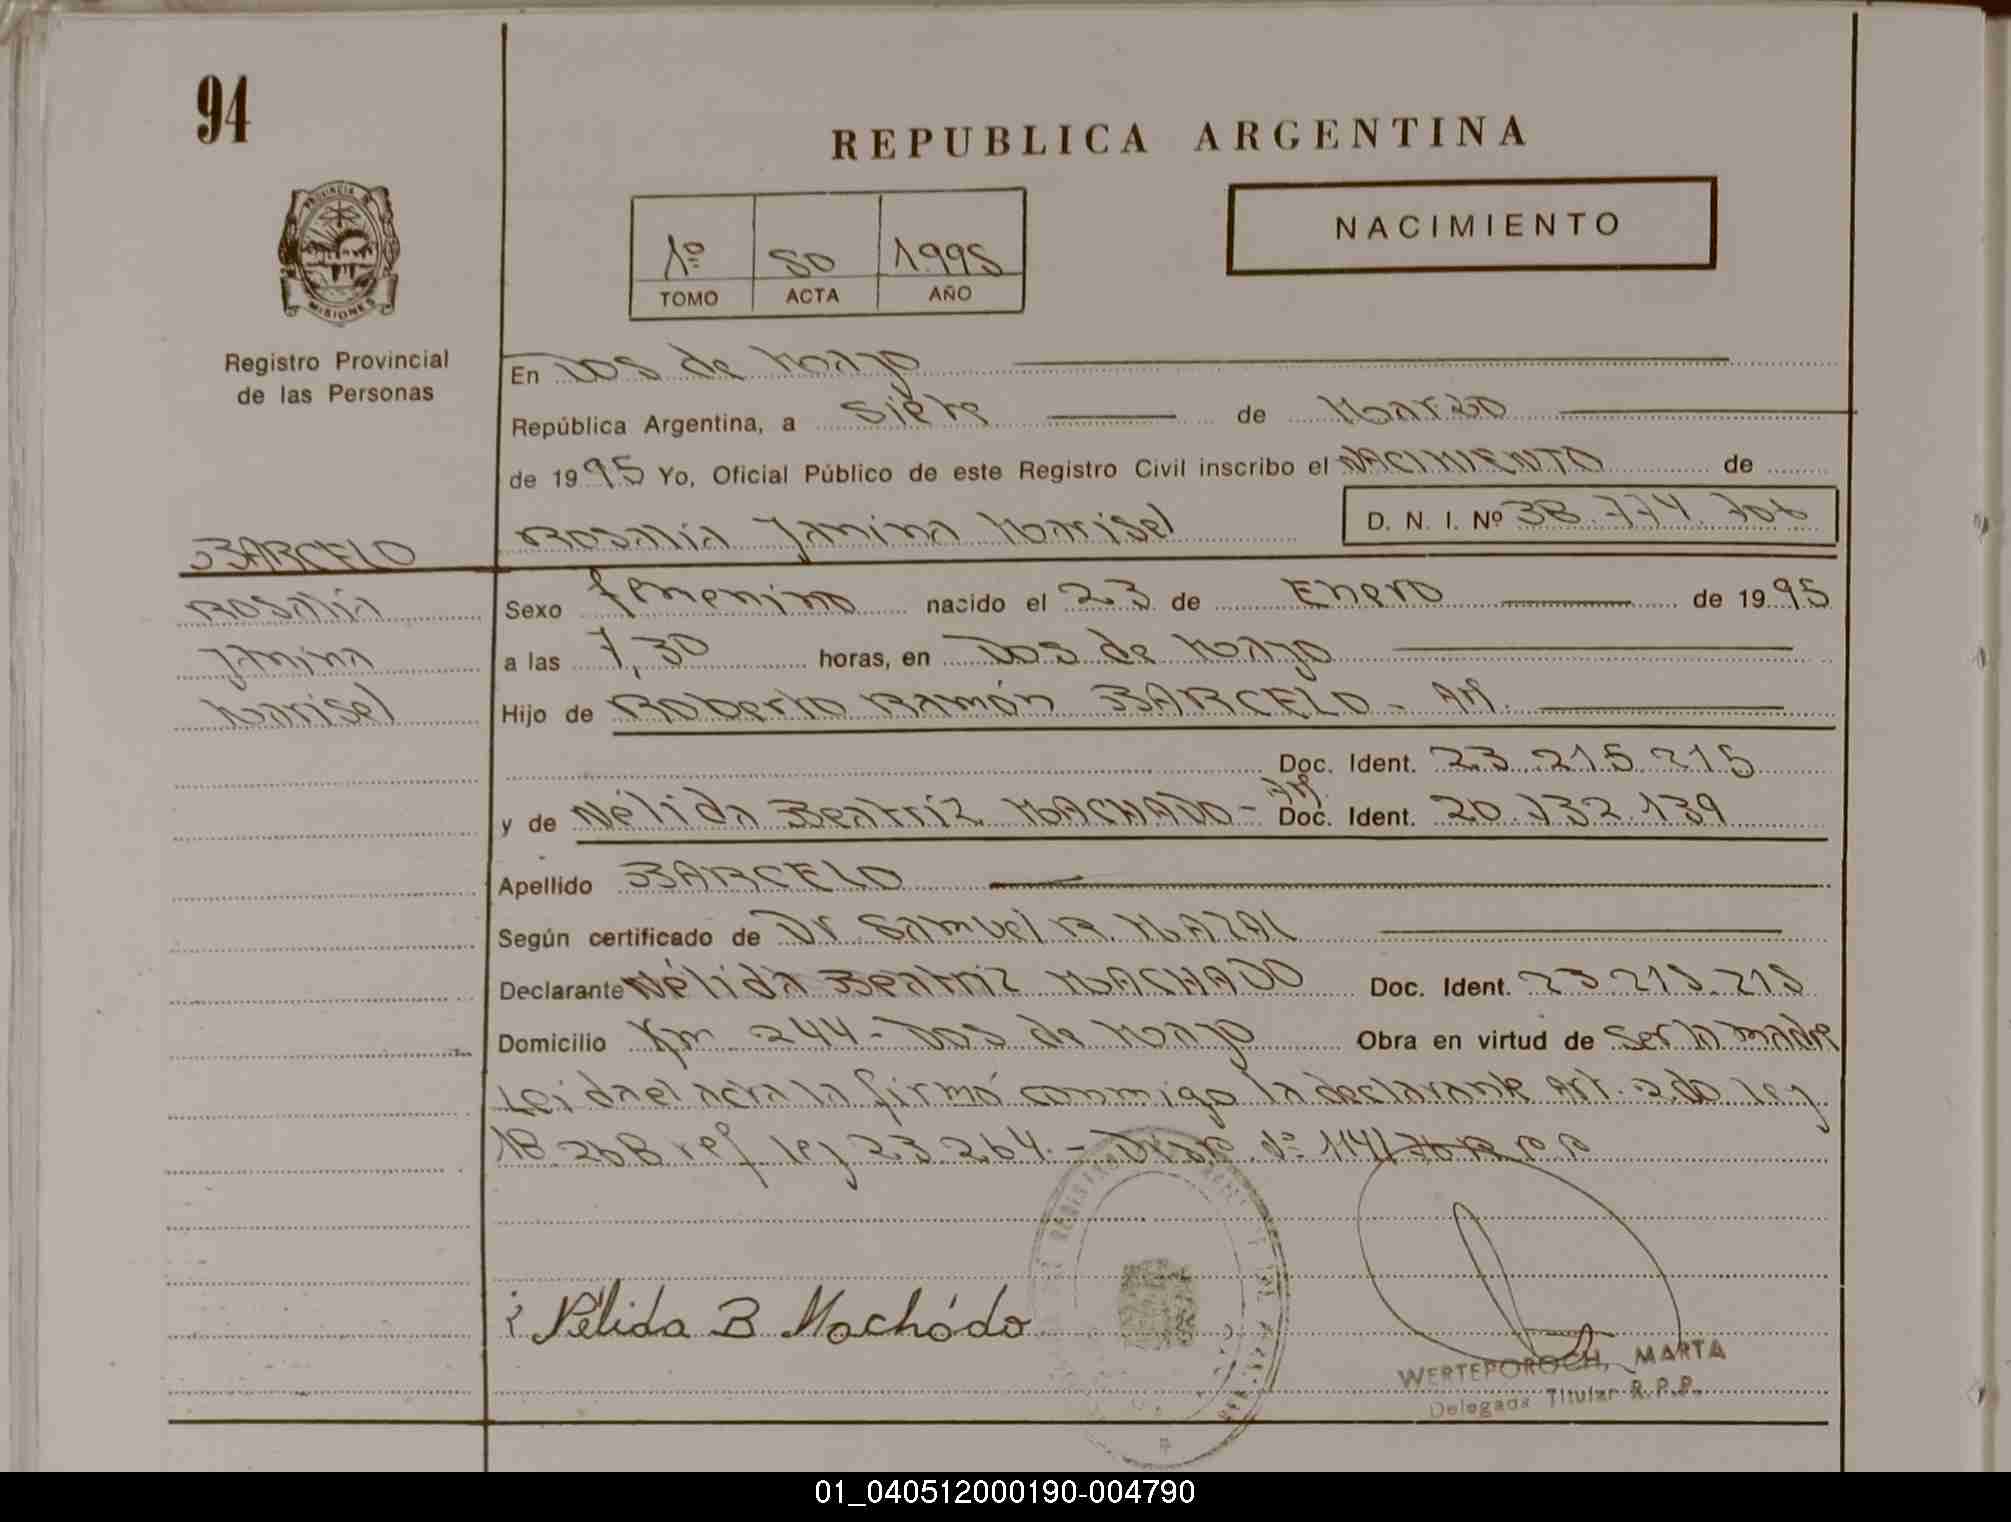 94
REPUBLICA ARGENTINA
PROVINCIA DE
MISIONES
Registro Provincial
de las Personas
1º 50 1.995
TOMO ACTA AÑO
NACIMIENTO
En Dos de Mayo
República Argentina, a siete de Marzo
de 1995 Yo, Oficial Público de este Registro Civil inscribo el NACIMIENTO de
Rosalía Janina Marisel D. N. I. Nº 38.774.706
BARCELO
Rosalía
Janina
Marisel
Sexo femenino nacido el 23 de Enero de 1995
a las 7,30 horas, en Dos de Mayo
Hijo de Roberto Ramón BARCELO - AM.
Doc. Ident. 23.215.215
y de Nélida Beatríz MACHADO - AM. Doc. Ident. 20.732.139
Apellido BARCELO
Según certificado de Dr Samuel R. MAZAL
Declarante Nélida Beatriz MACHADO Doc. Ident. 23.215.215
Domicilio Km 244 - Dos de Mayo Obra en virtud de ser la madre
Leida el acta la firmó conmigo la declarante Art. 2do ley
18.268 ref ley 23.264. -
Nélida B Machódo
WERTEPOROCH, MARTA
Delegada Titular R.P.P.
01_040512000190-004790